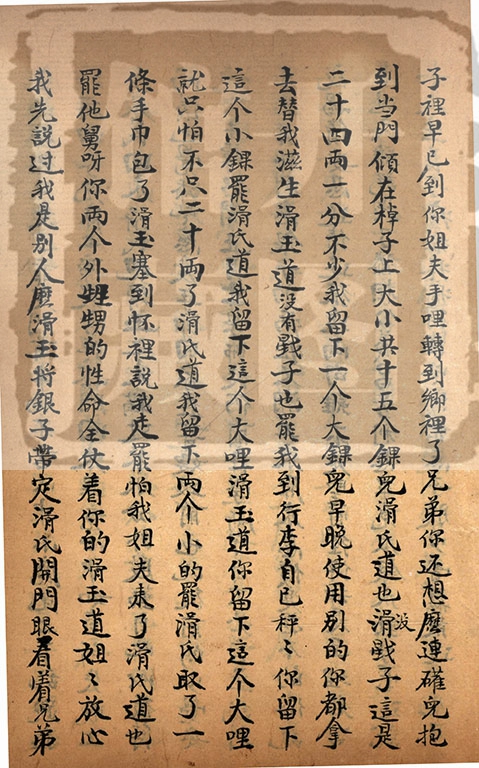 子裡早已到你姐夫手哩轉到鄉裡了兄弟你还想麽連礶兒抱
到当門傾在棹子上大小共十五个錁兒滑氏道也没戥子這是
二十四两一分不少我留下一个大錁兒早晚使用别的你都拿
去替我滋生滑玉道没有戥子也罷我到行李自已秤〻你留下
這个小錁罷滑氏道我留下這个大哩滑玉道你留下這个大哩
就只怕不尺二十両了滑氏道我留下両个小的罷滑氏取了一
條手巾包了滑玉塞到怀裡說我走罷怕我姐夫来了滑氏道也
罷他舅呀你両个外甥的性命全仗着你的滑玉道姐〻放心
我先説过我是别人麽滑玉将銀子帶定滑氏開門眼看着兄弟